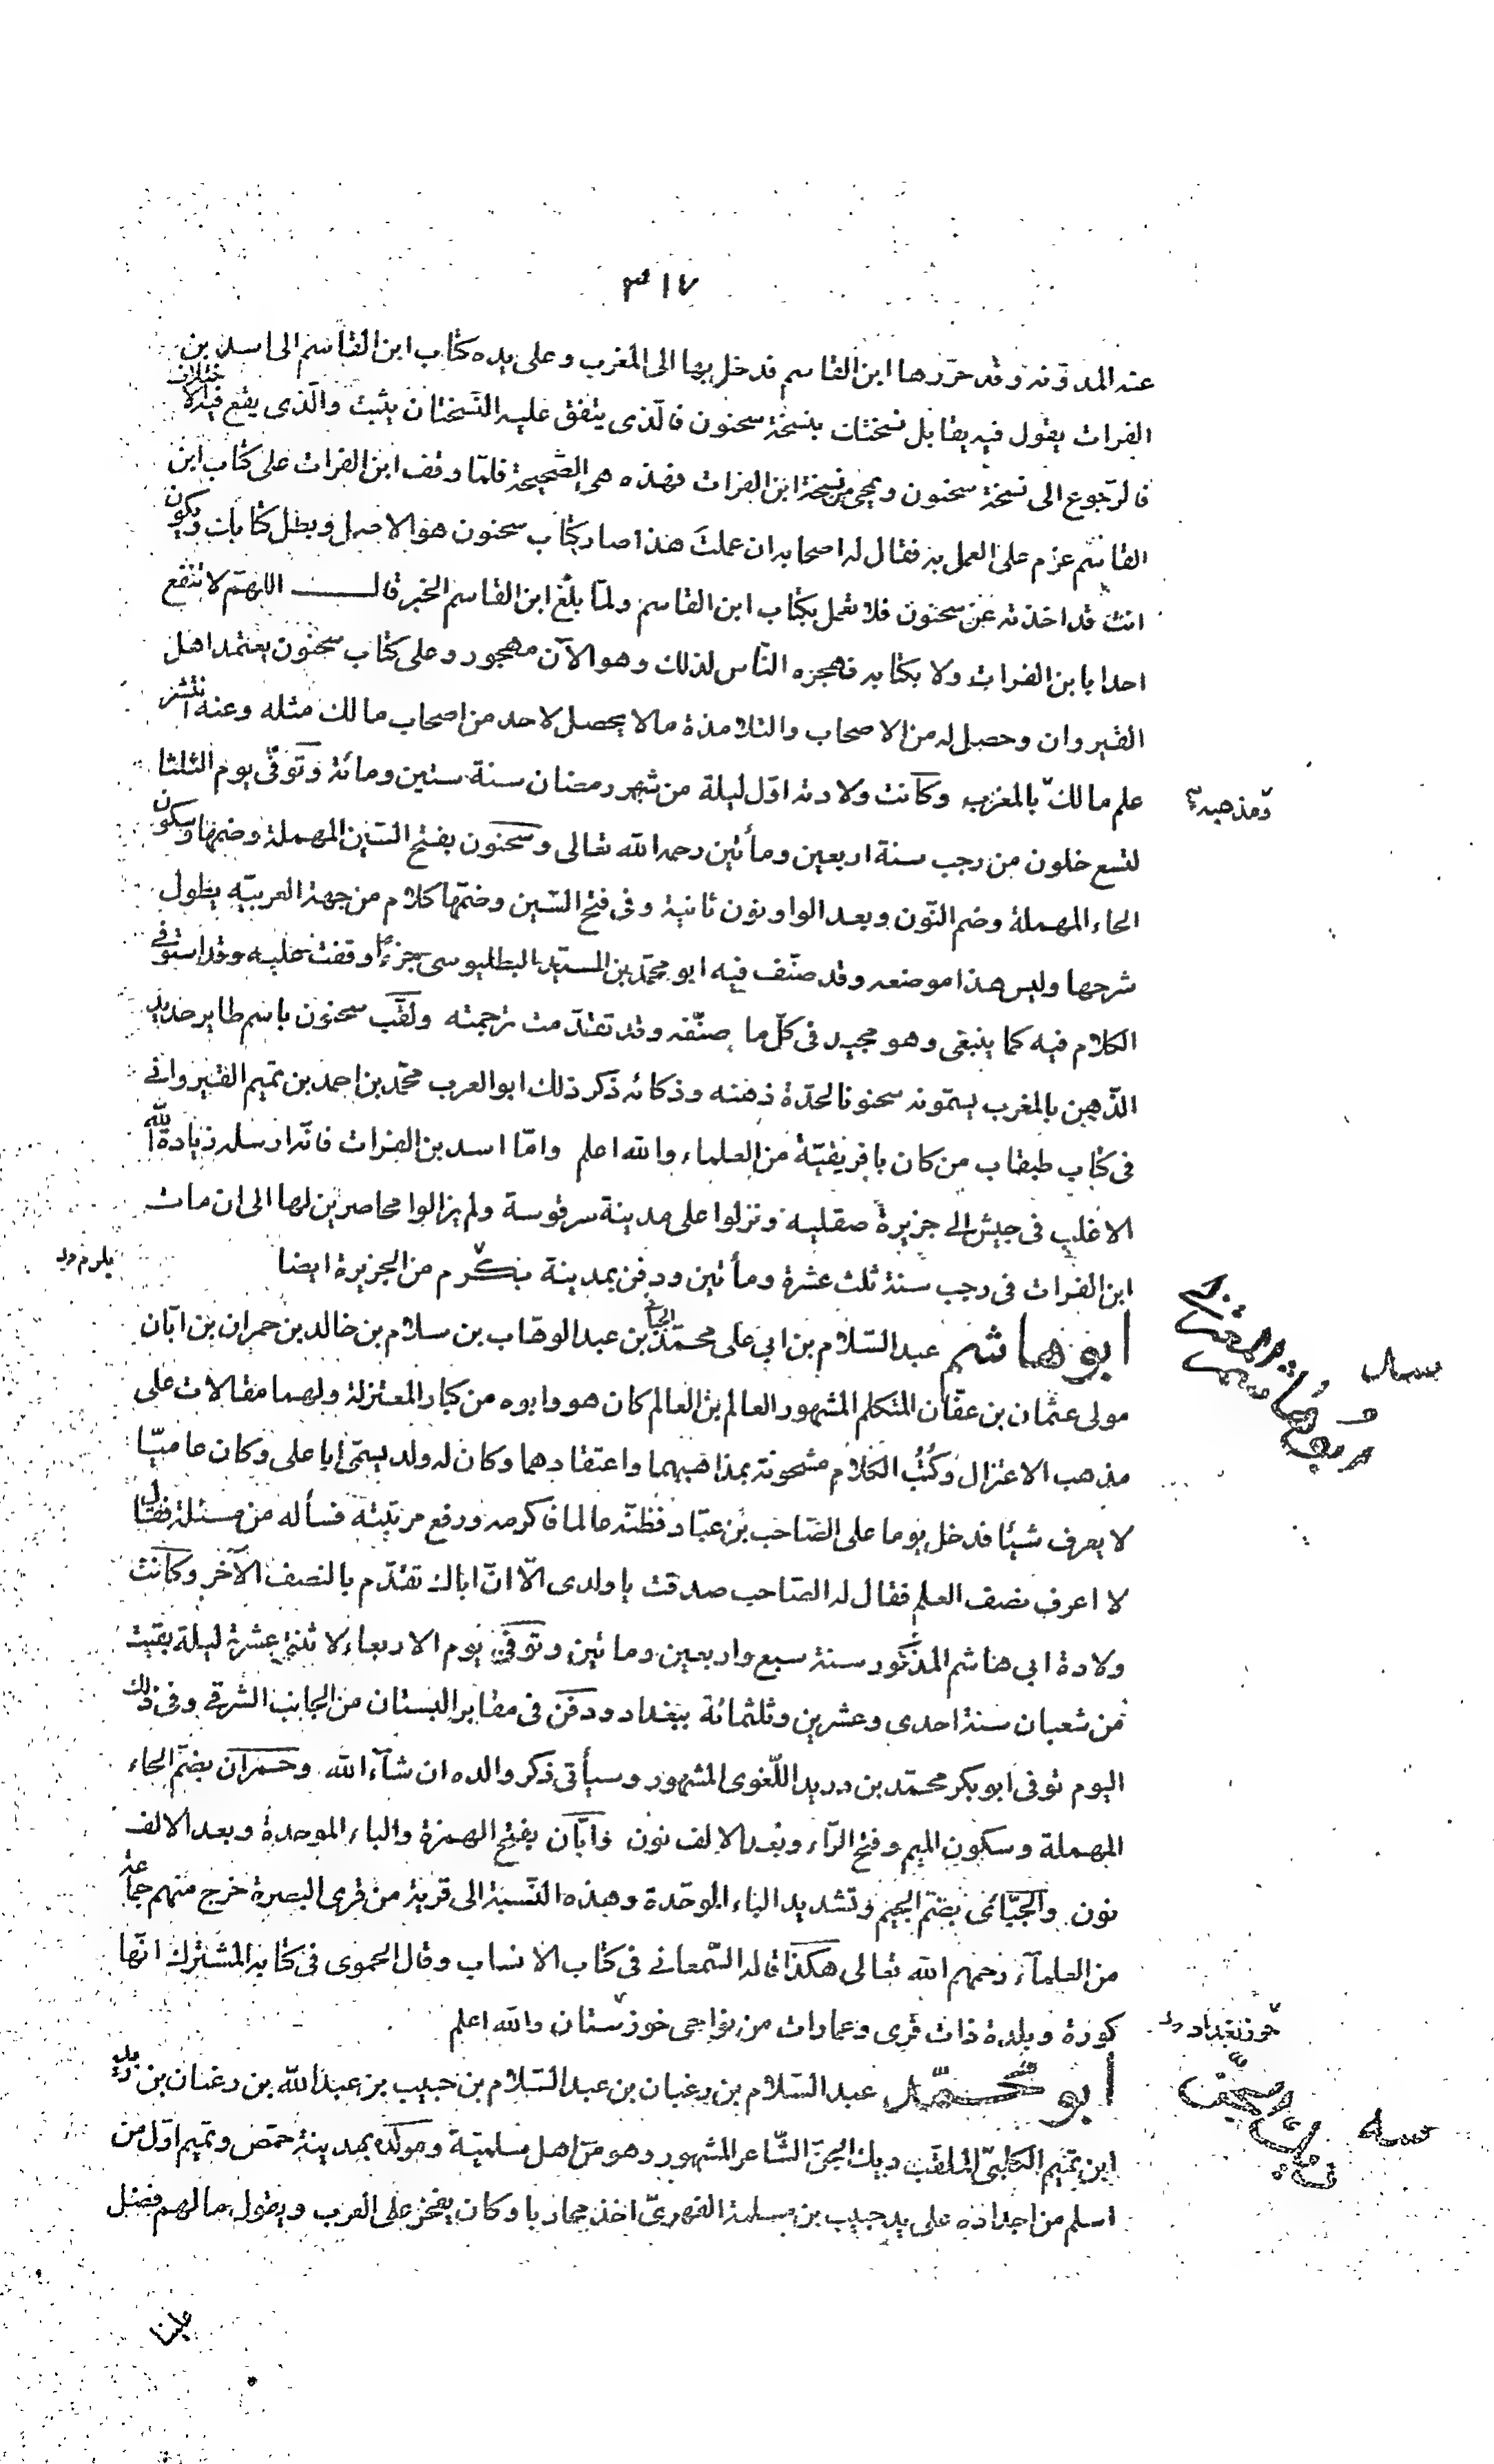 ٣١٧
عنه المدوّنة وقد حرّرها ابن القاسم فدخل بها الى المغرب وعلى يده كتاب ابن القاسم الى اسد بن
الفرات يقول فيه يقابل نسختك بنسخة سحنون فالّذى يتفق عليه النّسختان يثبت والّذى يقع فيه الاختلاف
فالرّجوع الى نسخة سحنون ويمحى من نسخة ابن الفرات فهذه هى الصّحيحة فلمّا وقف ابن الفرات على كتاب ابن
القاسم عزم على العمل به فقال له اصحابه ان عملت هذا صار كتاب سحنون هو الاصل وبطل كتابك وتكون
انت قد اخذته عن سحنون فلا تعمل بكتاب ابن القاسم ولمّا بلغ ابن القاسم الخبر قال اللهمّ لا تنفع
احدا بابن الفرات ولا بكتابه فهجره النّاس لذلك وهو الآن مهجور وعلى كتاب سحنون يعتمد اهل
القيروان وحصل له من الاصحاب والتلامذة مالا يحصل لاحد من اصحاب مالك مثله وعنه انتشر
علم مالك بالمغرب وكانت ولادته اوّل ليلة من شهر رمضان سنة ستين ومائة وتوفّى يوم الثلثا
ومذهبه
لتسع خلون من رجب سنة اربعين ومأتين رحمه الله تعالى وسحنون بفتح السّين المهملة وضمها وسكون
الحاء المهملة وضم النّون وبعد الواو نون ثانية وفى فتح السّين وضمّها كلام من جهة العربيّة يطول
شرحها وليس هذا موضعه وقد صنّف فيه ابو محمّد بن السيّد البطليوسى جزءًا وقفت عليه وقد استوفى
الكلام فيه كما ينبغى وهو مجيد فى كلّ ما صنّفه وقد تقدّمت ترجمته ولقّب سحنون باسم طاير حديد
الذّهن بالمغرب يسمّونه سحنونا لحدّة ذهنه وذكائه ذكر ذلك ابو العرب محمّد بن احمد بن تميم القيروانى
فى كتاب طبقاب من كان بافريقيّة من العلماء والله اعلم وامّا اسد بن الفرات فانّه ارسله زيادة الله
الاغلب فى جيش الى جزيرة صقليه ونزلوا على مدينة سرقوسة ولم يزالوا محاصرين لها الى ان مات
ابن الفرات فى رجب سنة ثلث عشرة ومأتين ودفن بمدينة بلرم من الجزيرة ايضا
بلرم
ابو هاشم عبد السّلام بن ابى على محمّد الجبائى بن عبد الوهّاب بن سلام بن خالد بن حمران بن ابان
ابو هاشم المعتزلى
مولى عثمان بن عفّان المتكلم المشهور العالم بن العالم كان هو وابوه من كبار المعتزلة ولهما مقالات على
مذهب الاعتزال وكتُب الكلام مشحونة بمذاهبهما واعتقادهما وكان له ولد يسمّى ابا على وكان عاميّا
لا يعرف شيئا فدخل يوما على الصّاحب بن عبّاد فظنّه عالما فاكرمه ورفع مرتبته فسأله من مسئلة فقال
لا اعرف نصف العلم فقال له الصّاحب صدقت يا ولدى الّا انّ اباك تقدّم بالنصف الآخر وكانت
ولادة ابى هاشم المذكور سنة سبع واربعين ومائتين وتوفى يوم الاربعاء لاثنتى عشرة ليلة بقيت
من شعبان سنة احدى وعشرين وثلثمائة ببغداد ودفن فى مقابر البستان من الجانب الشرقى وفى ذلك
اليوم توفى ابو بكر محمّد بن دريد اللّغوى المشهور وسيأتى ذكر والده ان شآء الله وحمران بضمّ الحاء
المهملة وسكون الميم وفتح الرّاء وبعد الالف نون وابّان بفتح الهمزة والباء الموحدة وبعد الالف
نون والجبّائى بضمّ الجيم وتشديد الباء الموحّدة وهذه النّسبة الى قرية من قرى البصرة خرج منهم جماعة
من العلمآء رحمهم الله تعالى هكذا قاله السّمعانى فى كتاب الانساب وقال الحموى فى كتابه المشترك انّها
كورة وبلدة ذات قرى وعمارات من نواحى خوزستان والله اعلم
ابو محمّد عبد السّلام بن رغبان بن عبد السّلام بن حبيب بن عبد الله بن رغبان بن زيد
ديك الجنّ
ابن تميم الكلبىّ الملقّب ديك الجنّ الشّاعر المشهور وهو من اهل سلميّة ومولده بمدينة حمص وتميم اوّل من
اسلم من اجداده على يد حبيب بن مسلمة الفهرىّ اخذ محاربا وكان يفخر على العرب ويقول مالهم فضل
علينا